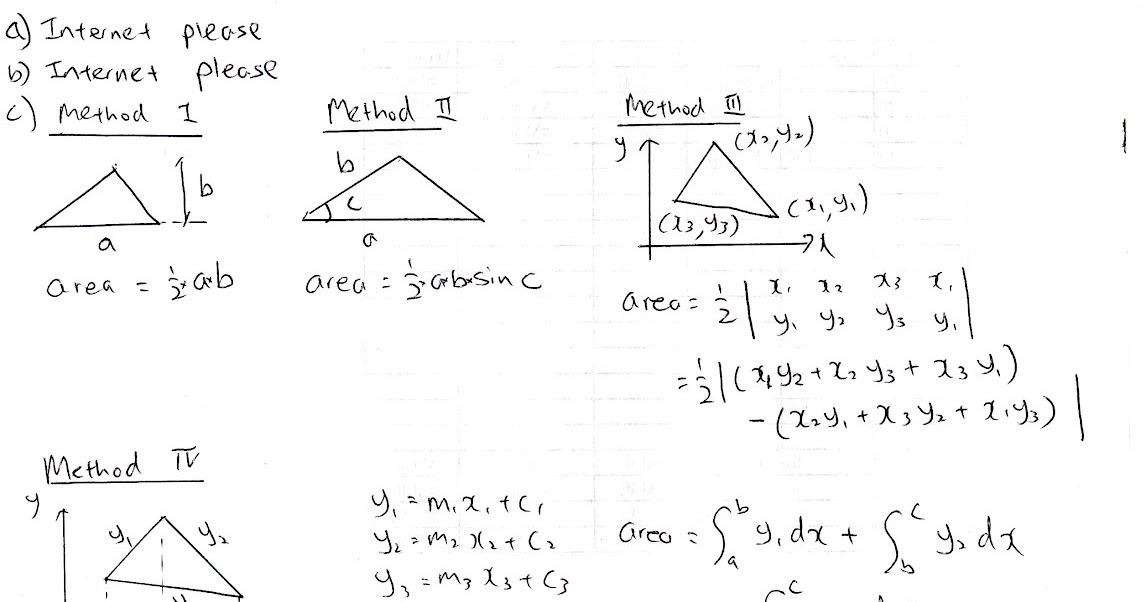 a) Internet please
b) Internet please
c) Method I
Method II
Method III
b
a
area = ½×a×b
b
c
a
area = ½×a×b×sin c
y
(x₂,y₂)
(x₁,y₁)
(x₃,y₃)
x
area = ½ | x₁ x₂ x₃ x₁
y₁ y₂ y₃ y₁ |
= ½ |(x₁y₂ + x₂y₃ + x₃y₁)
- (x₂y₁ + x₃y₂ + x₁y₃)|
Method IV
y
y₁
y₂
y₁ = m₁x₁ + c₁
y₂ = m₂x₂ + c₂
y₃ = m₃x₃ + c₃
area = ∫ₐᵇ y₁dx + ∫_b^c y₂dx